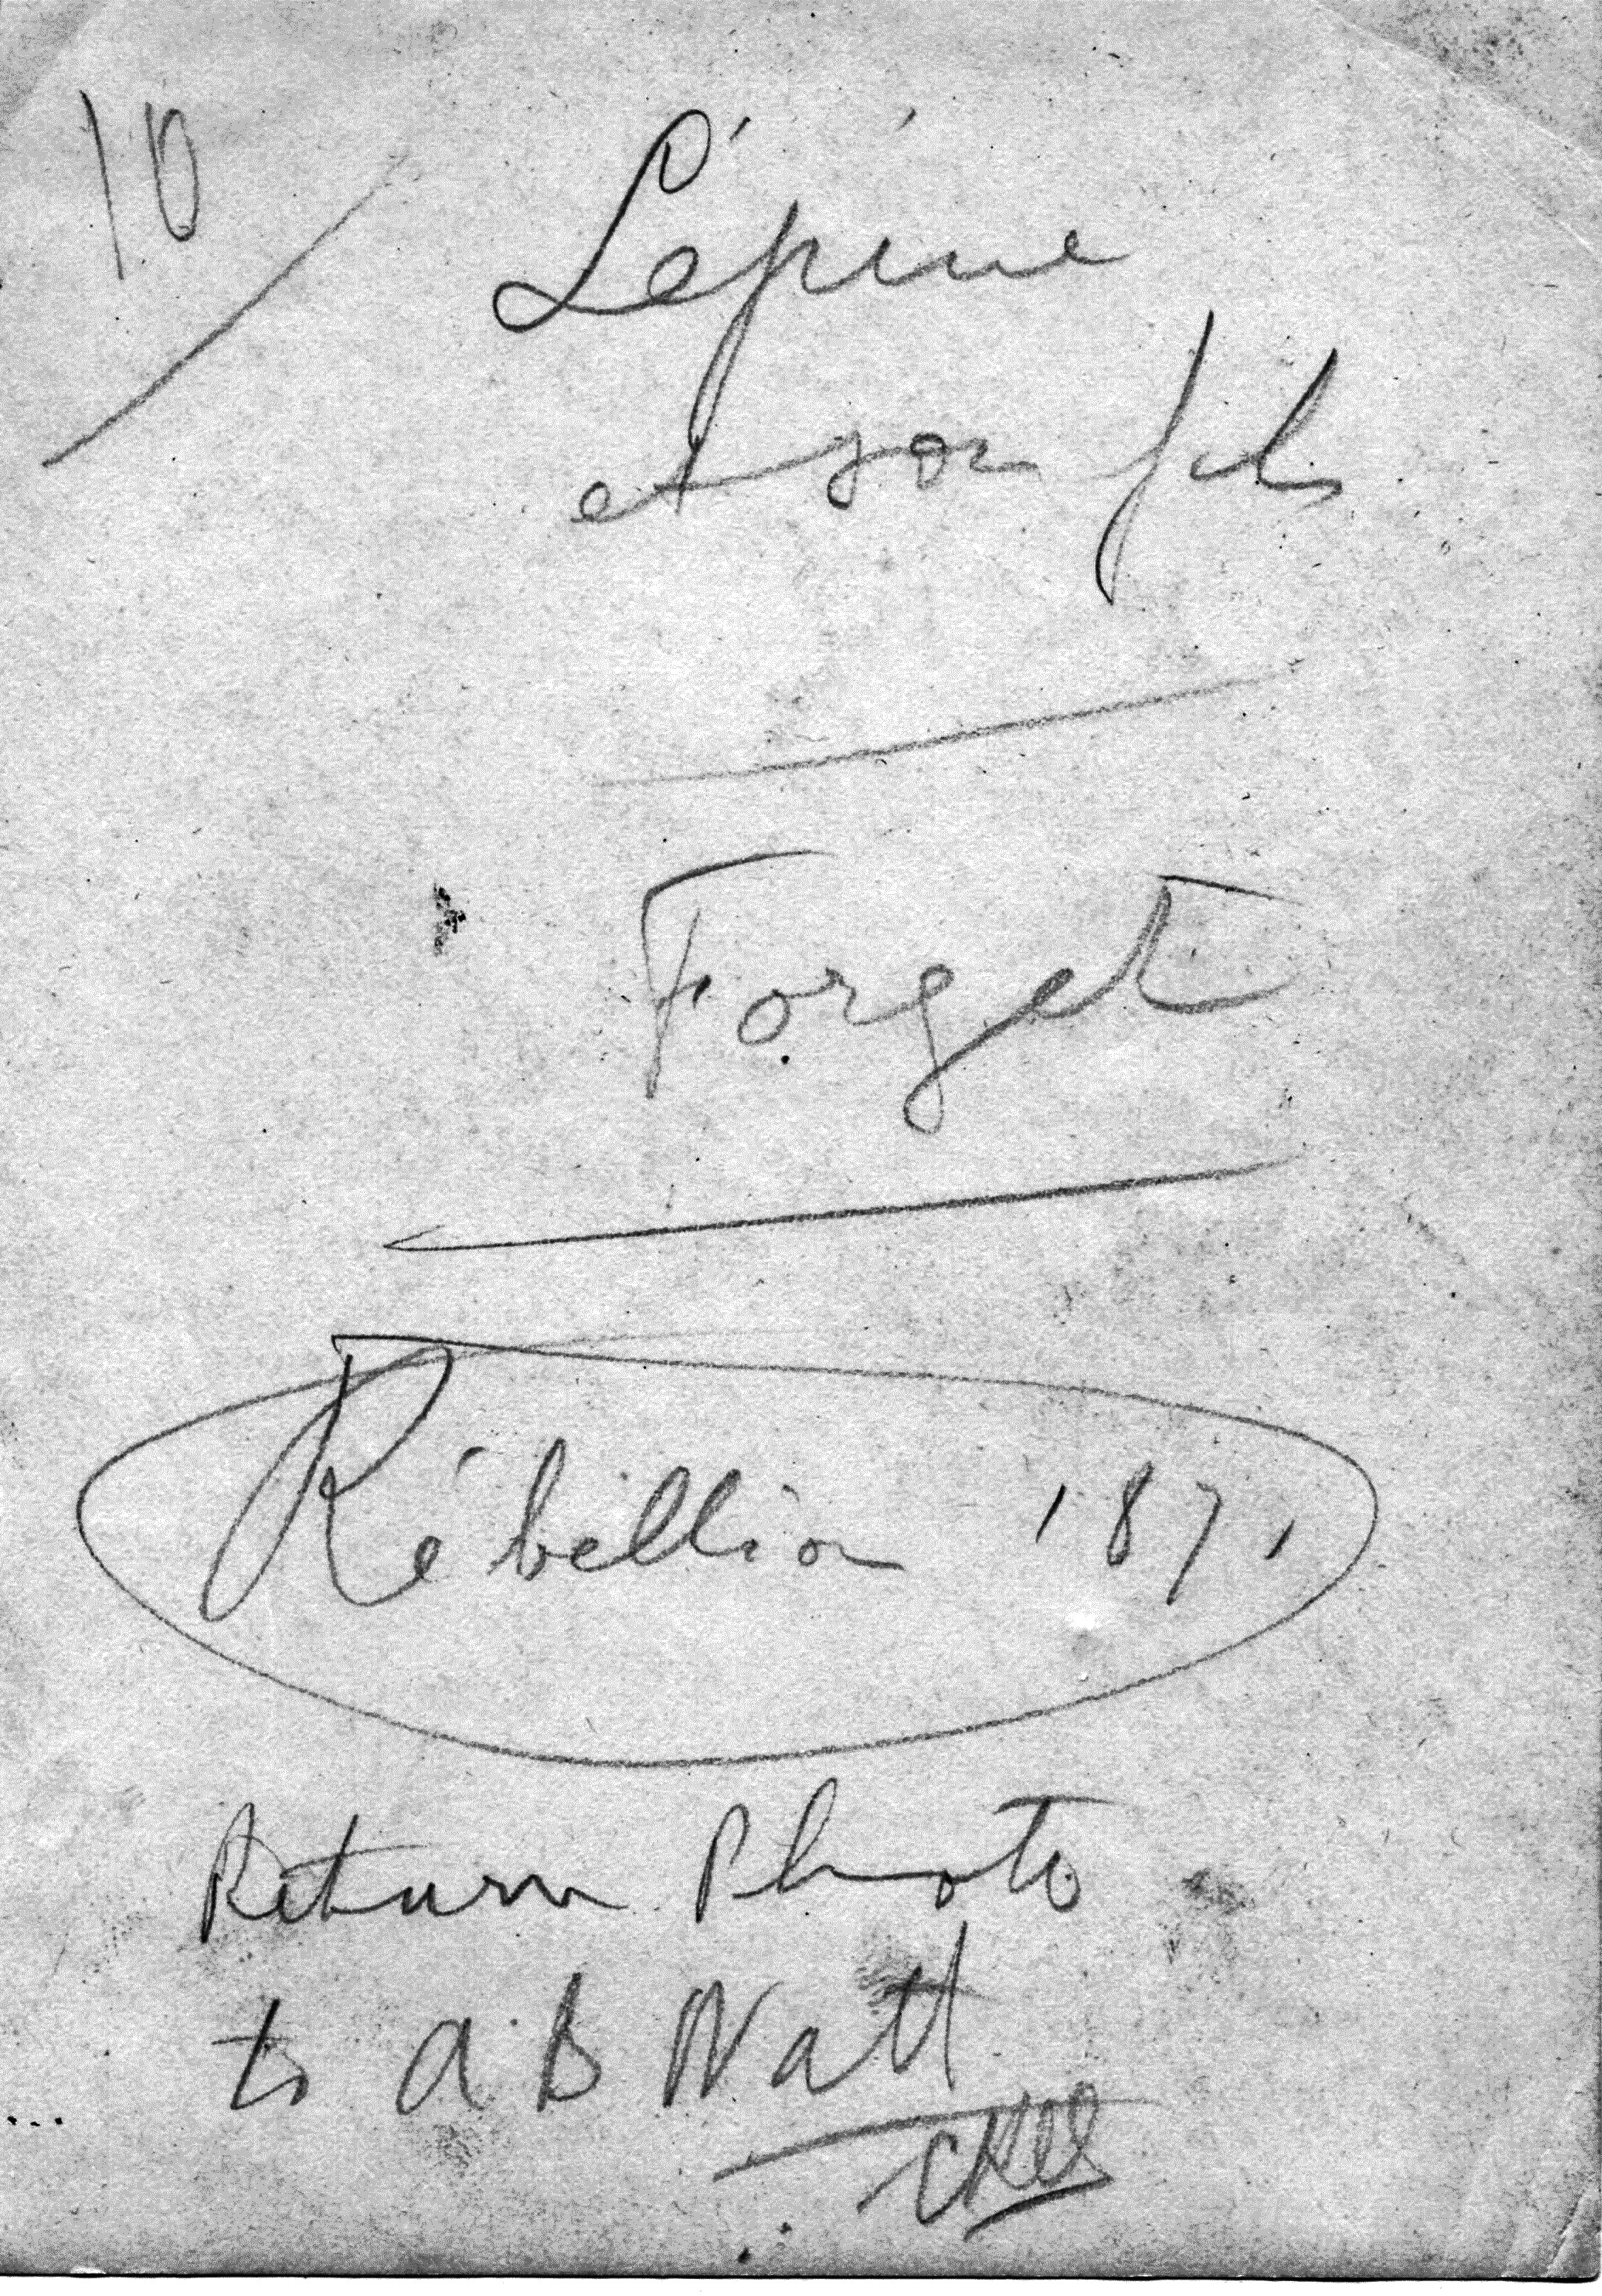 10
Lépine
et son fils
Forget
Rébellion 1871
Return Photo
to A. B Watt